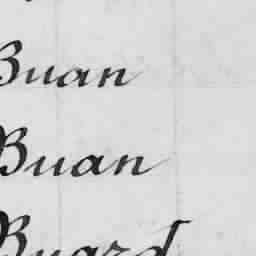 Buan
Buan
Buard